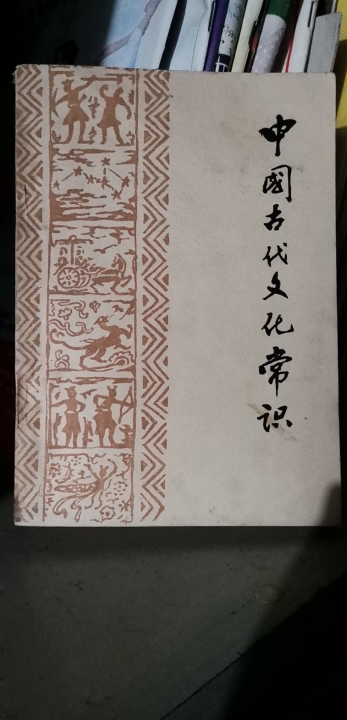 中國古代文化常识